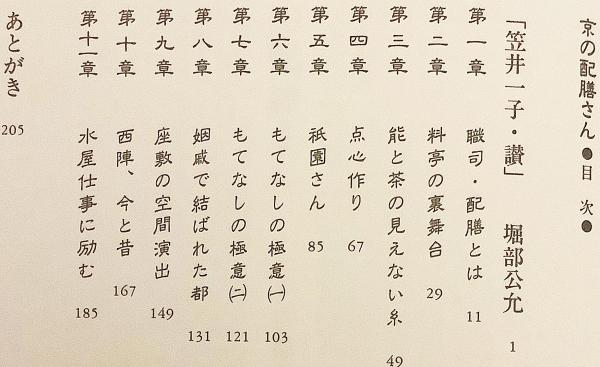 京の配膳さん●目次●
「笠井一子・讃」 堀部公允 1
第一章 職司・配膳とは 11
第二章 料亭の裏舞台 29
第三章 能と茶の見えない糸 49
第四章 点心作り 67
第五章 祇園さん 85
第六章 もてなしの極意㈠ 103
第七章 もてなしの極意㈡ 121
第八章 姻戚で結ばれた都 131
第九章 座敷の空間演出 149
第十章 西陣、今と昔 167
第十一章 水屋仕事に励む 185
あとがき 205